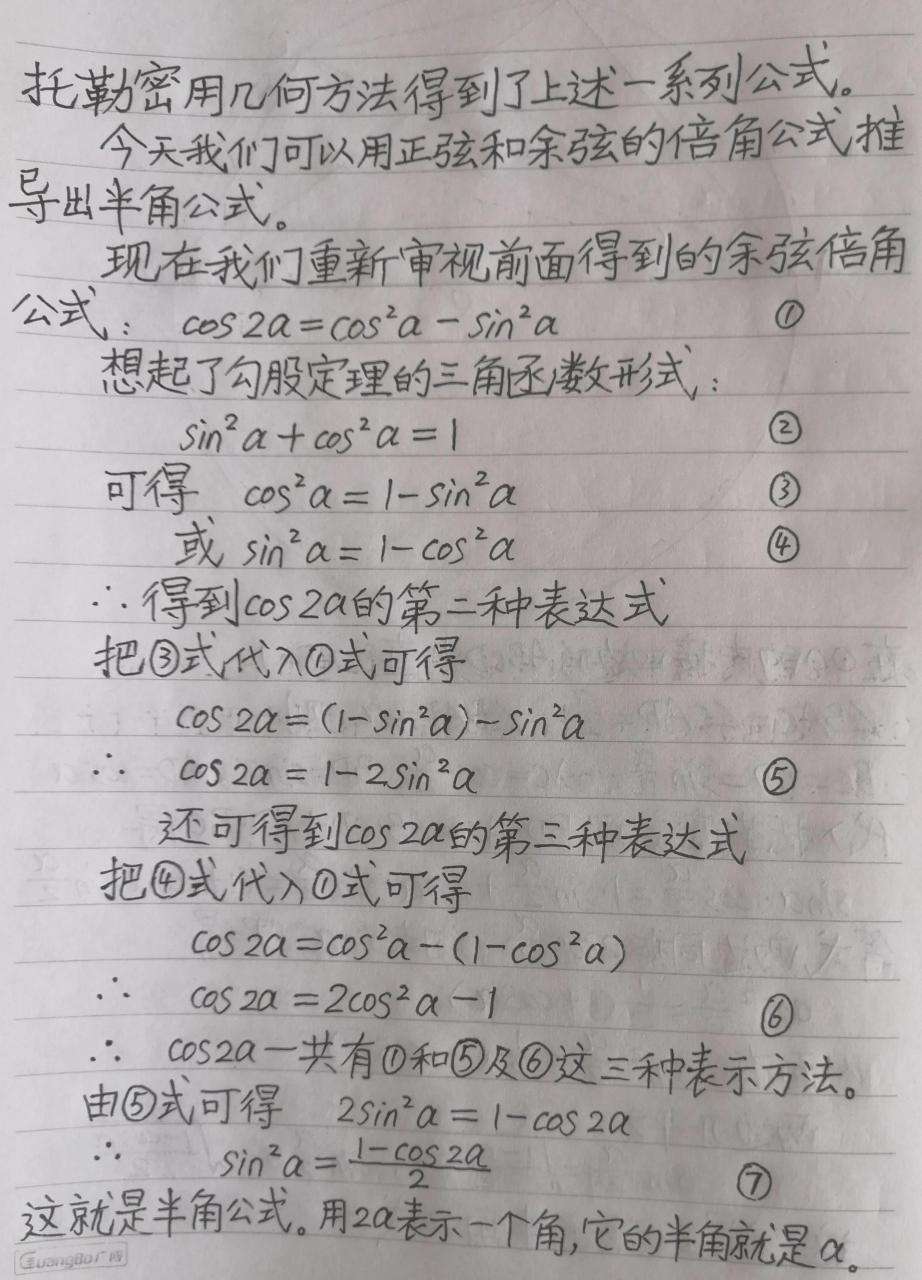 托勒密用几何方法得到了上述一系列公式。
今天我们可以用正弦和余弦的倍角公式推
导出半角公式。
现在我们重新审视前面得到的余弦倍角
公式: cos2α=cos²α-sin²α ①
想起了勾股定理的三角函数形式:
sin²α+cos²α=1 ②
可得 cos²α=1-sin²α ③
或 sin²α=1-cos²α ④
∴得到cos2α的第二种表达式
把③式代入①式可得
cos2α=(1-sin²α)-sin²α
∴ cos2α=1-2sin²α ⑤
还可得到cos2α的第三种表达式
把④式代入①式可得
cos2α=cos²α-(1-cos²α)
∴ cos2α=2cos²α-1 ⑥
∴ cos2α一共有①和⑤及⑥这三种表示方法。
由⑤式可得 2sin²α=1-cos2α
∴ sin²α=(1-cos2α)/2 ⑦
这就是半角公式。用2α表示一个角,它的半角就是α。
GuangBo广博